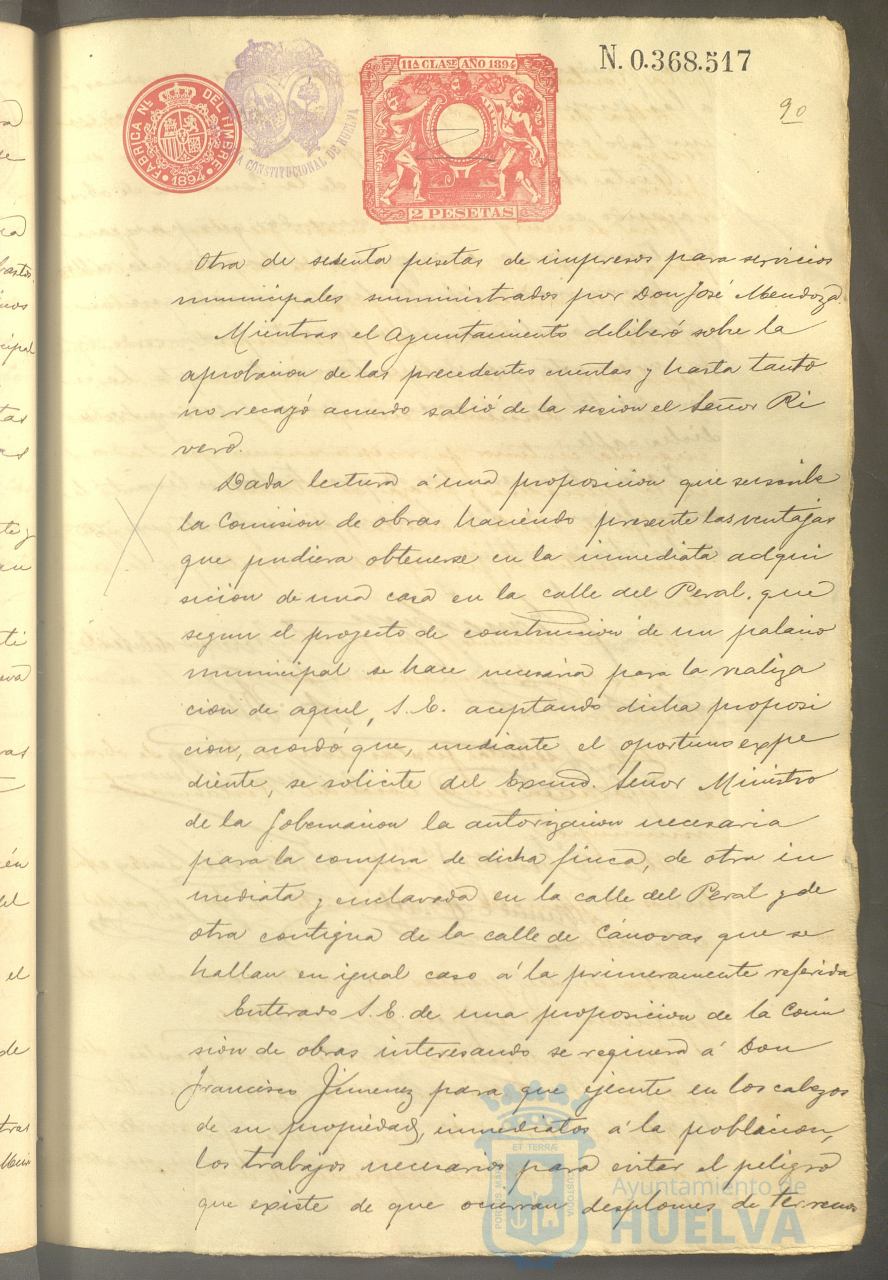 N. 0.368.517
11ª CLASE AÑO 1894
FABRICA Nal. DEL TIMBRE
1894
A CONSTITUCIONAL DE HUELVA
2 PESETAS
90
Otra de sesenta pesetas de impresos para servicios
municipales suministrados por Don José Mendoza.
Mientras el Ayuntamiento deliberó sobre la
aprobacion de las precedentes cuentas y hasta tanto
no recayó acuerdo salió de la sesion el Señor Ri
vero.
Dada lectura á una proposicion que suscribe
la Comision de obras haciendo presente las ventajas
que pudiera obtenerse en la inmediata adqui
sicion de una casa en la calle del Peral, que
segun el proyecto de construccion de un palacio
municipal se hace necesaria para la realiza
cion de aquel, S. E. aceptando dicha proposi
cion, acordó que, mediante el oportuno expe
diente, se solicite del Excmo. Señor Ministro
de la Gobernacion la autorizacion necesaria
para la compra de dicha finca, de otra in
mediata y enclavada en la calle del Peral y de
otra contigua de la calle de Cánovas que se
hallan en igual caso á la primeramente referida
Enterado S. E. de una proposicion de la Comi
sion de obras interesando se requiera á Don
Francisco Jimenez para que ejecute en los cabezos
de su propiedad, inmediatos á la poblacion,
los trabajos necesarios para evitar el peligro
que existe de que ocurran desplomes de terrenos
PORTUS MARIS ET TERRÆ CUSTODIA
Ayuntamiento de
HUELVA